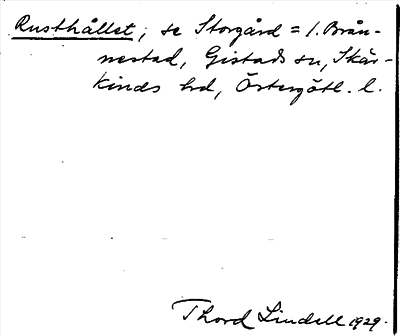 Rusthållet; se Storgård = 1. Brån-
nestad, Gistads sn, Skär-
kinds hd, Östergötl. l.
Thord Lindell 1929.